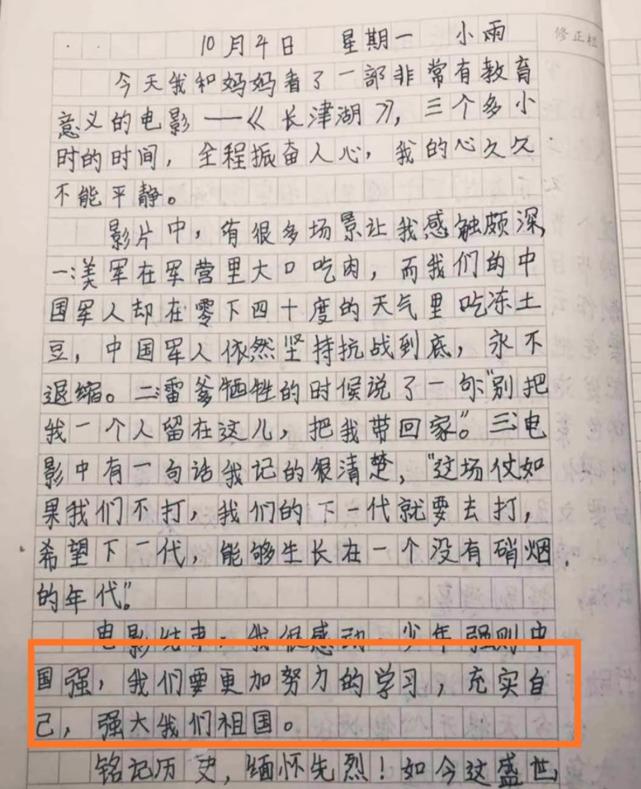 修正栏
10月4日 星期一 小雨
今天我和妈妈看了一部非常有教育
意义的电影——《长津湖》，三个多小
时的时间，全程振奋人心，我的心久久
不能平静。
影片中，有很多场景让我感触颇深，
一：美军在军营里大口吃肉，而我们的中
国军人却在零下四十度的天气里吃冻土
豆，中国军人依然坚持抗战到底，永不
退缩。二：雷爹牺牲的时候说了一句“别把
我一个人留在这儿，把我带回家”。三：电
影中有一句话我记的很清楚，“这场仗如
果我们不打，我们的下一代就要去打，
希望下一代，能够生长在一个没有硝烟
的年代”。
电影结束，我很感动，少年强则中
国强，我们要更加努力的学习，充实自
己，强大我们祖国。
铭记历史，缅怀先烈！如今这盛世，